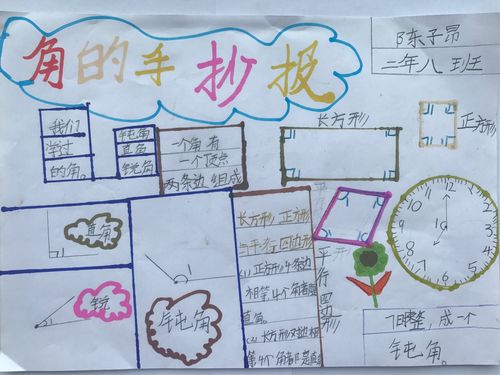 角的手抄报
陈子昂
二年八班
我们
学过
的角。
钝角
直角
锐角
一个角有
一个顶点
两条边组成
长方形
正方形
直角
锐
钝角
长方形 正方形
与平行四边形
(1) 正方形4条边
相等4个角都是
直角。
(2) 长方形对边相
等4个角都是直
平行四边形
12
1
2
3
4
5
6
7
8
9
10
11
7时整，成一个
钝角。